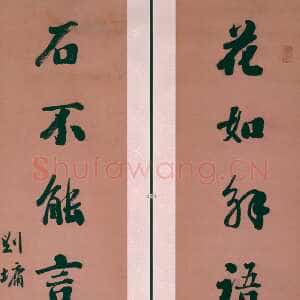 花如解語
石不能言
劉墉
Shufawang.CN